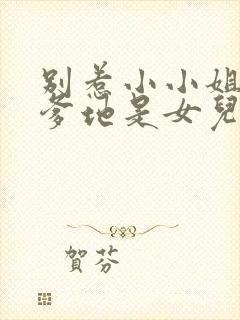 别惹小小姐
爹地是女儿
賀芬